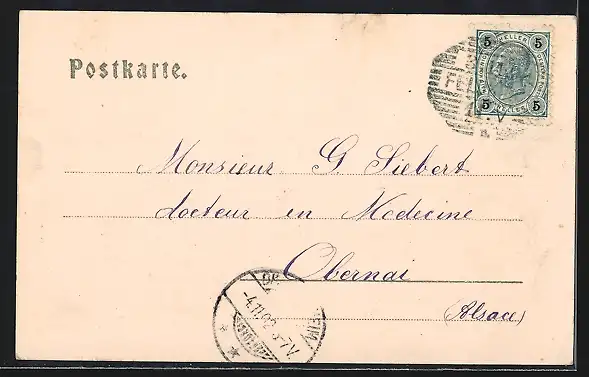 Postkarte.
5 HELLER 5
5 HELLER 5
Monsieur G Siebert
docteur en Medecine
Obernai
(Alsace)
-4.11.02. 6-7V.